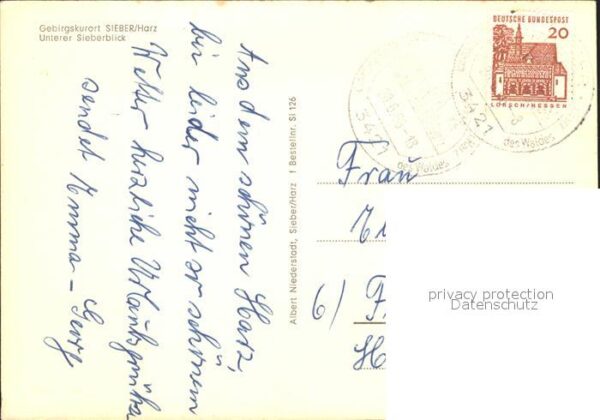 Gebirgskurort SIEBER/Harz
Unterer Sieberblick
Aus dem schönen Harz,
bei leider nicht so schönem
Wetter herzliche Urlaubsgrüße
sendet Emma - Gerg
Albert Niederstadt, Sieber/Harz 1 Bestellnr. SI 126
DEUTSCHE BUNDESPOST
20
LORSCH/HESSEN
3421
des Waldes
3421
des Waldes
Frau
6/ F
H
privacy protection
Datenschutz